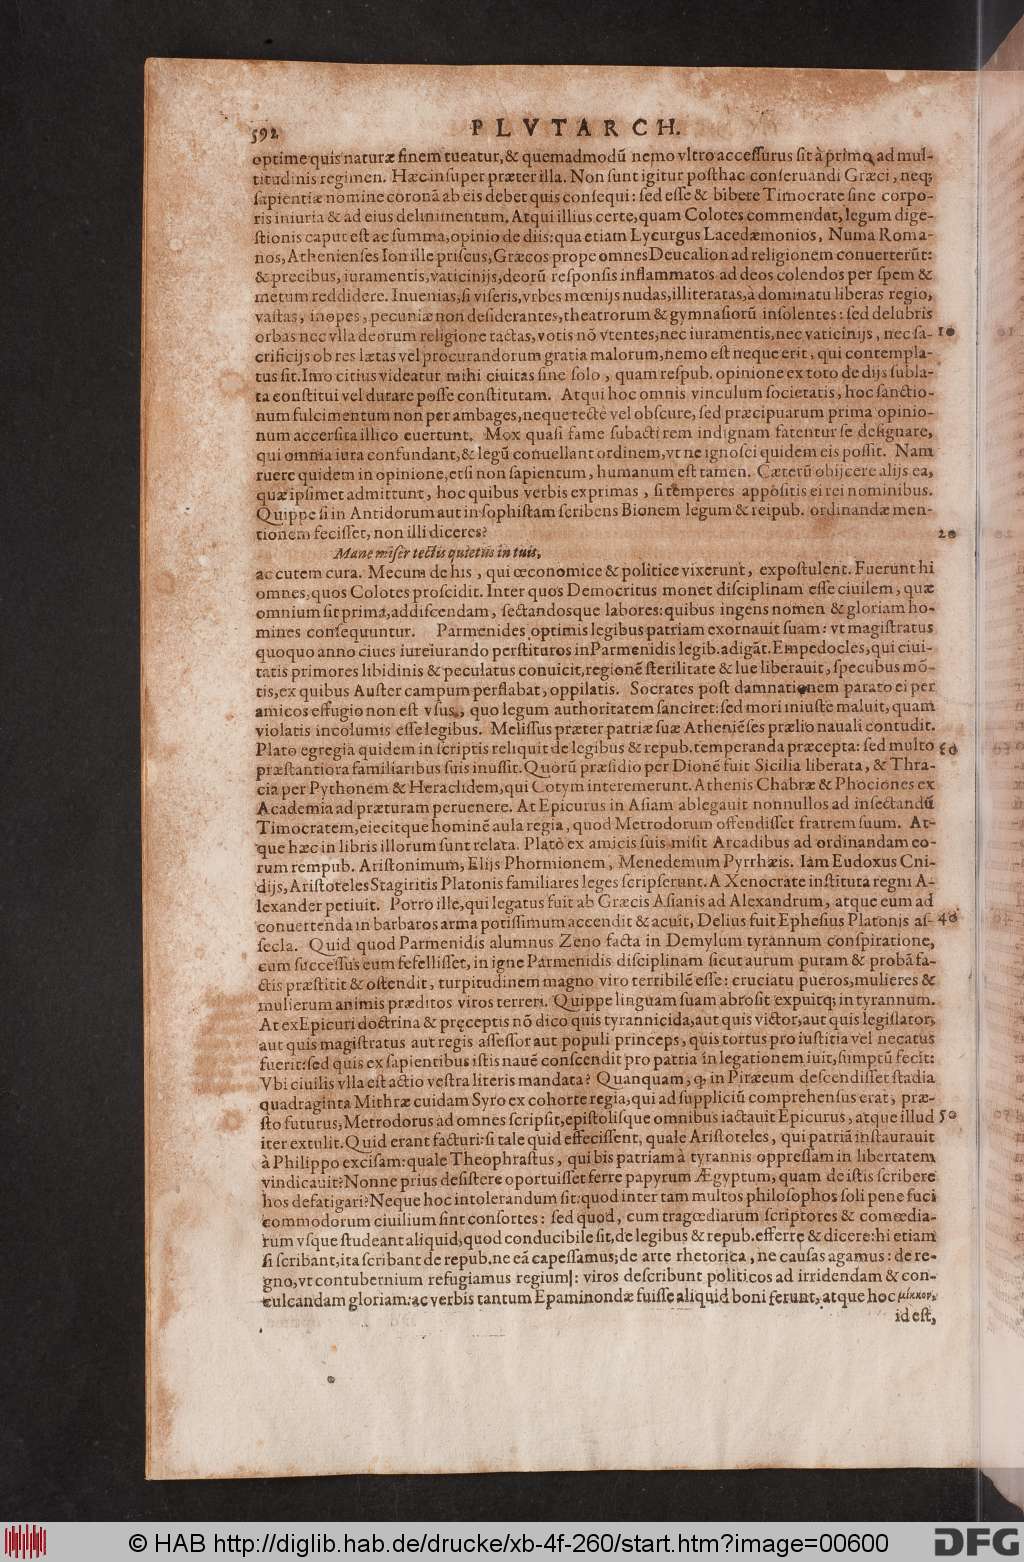 592
PLVTARCH.
optime quis naturæ finem tueatur, & quemadmodū nemo vltro accessurus sit à primo ad mul-
titudinis regimen. Hæc insuper præter illa. Non sunt igitur posthac conseruandi Græci, neq;
sapientiæ nomine coronā ab eis debet quis consequi: sed esse & bibere Timocrate sine corpo-
ris iniuria & ad eius delinimentum. Atqui illius certe, quam Colotes commendat, legum dige-
stionis caput est ac summa, opinio de diis: qua etiam Lycurgus Lacedæmonios, Numa Roma-
nos, Athenienses Ion ille priscus, Græcos prope omnes Deucalion ad religionem conuerterūt:
& precibus, iuramentis, vaticinijs, deorū responsis inflammatos ad deos colendos per spem &
metum reddidere. Inuenias, si viseris, vrbes mœnijs nudas, illiteratas, à dominatu liberas regio,
vastas, inopes, pecuniæ non desiderantes, theatrorum & gymnasiorū insolentes: sed delubris
orbas nec vlla deorum religione tactas, votis nō vtentes, nec iuramentis, nec vaticinijs, nec sa- 10
crificijs ob res lætas vel procurandorum gratia malorum, nemo est neque erit, qui contempla-
tus sit. Imo citius videatur mihi ciuitas sine solo, quam respub. opinione ex toto de dijs subla-
ta constitui vel durare posse constitutam. Atqui hoc omnis vinculum societatis, hoc sanctio-
num fulcimentum non per ambages, neque tectè vel obscure, sed præcipuarum prima opinio-
num accersita illico euertunt. Mox quasi fame subacti rem indignam fatentur se designare,
qui omnia iura confundant, & legū conuellant ordinem, vt ne ignosci quidem eis possit. Nam
ruere quidem in opinione, etsi non sapientum, humanum est tamen. Cæterū obijcere alijs ea,
quæ ipsimet admittunt, hoc quibus verbis exprimas, si temperes appositis ei rei nominibus.
Quippe si in Antidorum aut in sophistam scribens Bionem legum & reipub. ordinandæ men-
tionem fecisset, non illi diceres? 20
Mane miser tectis quietus in tuis,
ac cutem cura. Mecum de his, qui œconomice & politice vixerunt, expostulent. Fuerunt hi
omnes, quos Colotes proscidit. Inter quos Democritus monet disciplinam esse ciuilem, quæ
omnium sit prima, addiscendam, sectandosque labores: quibus ingens nomen & gloriam ho-
mines consequuntur. Parmenides optimis legibus patriam exornauit suam: vt magistratus
quoquo anno ciues iureiurando perstituros in Parmenidis legib. adigāt. Empedocles, qui ciui-
tatis primores libidinis & peculatus conuicit, regionē sterilitate & lue liberauit, specubus mō-
tis, ex quibus Auster campum perflabat, oppilatis. Socrates post damnationem parato ei per
amicos effugio non est vsus, quo legum authoritatem sanciret: sed mori iniuste maluit, quam
violatis incolumis esse legibus. Melissus præter patriæ suæ Atheniēses prælio nauali contudit.
Plato egregia quidem in scriptis reliquit de legibus & repub. temperanda præcepta: sed multo 30
præstantiora familiaribus suis inussit. Quorū præsidio per Dionē fuit Sicilia liberata, & Thra-
cia per Pythonem & Heraclidem, qui Cotym interemerunt. Athenis Chabræ & Phociones ex
Academia ad præturam peruenere. At Epicurus in Asiam ablegauit nonnullos ad insectandū
Timocratem, eiecitque hominē aula regia, quod Metrodorum offendisset fratrem suum. At-
que hæc in libris illorum sunt relata. Plato ex amicis suis misit Arcadibus ad ordinandam eo-
rum rempub. Aristonimum, Elijs Phormionem, Menedemum Pyrrhæis. Iam Eudoxus Cni-
dijs, Aristoteles Stagiritis Platonis familiares leges scripserunt. A Xenocrate instituta regni A-
lexander petiuit. Porro ille, qui legatus fuit ab Græcis Asianis ad Alexandrum, atque eum ad
conuertenda in barbaros arma potissimum accendit & acuit, Delius fuit Ephesius Platonis as- 40
secla. Quid quod Parmenidis alumnus Zeno facta in Demylum tyrannum conspiratione,
cum successus eum fefellisset, in igne Parmenidis disciplinam sicut aurum puram & probā fa-
ctis præstitit & ostendit, turpitudinem magno viro terribilē esse: cruciatu pueros, mulieres &
mulierum animis præditos viros terreri. Quippe linguam suam abrosit expuitq; in tyrannum.
At ex Epicuri doctrina & pręceptis nō dico quis tyrannicida, aut quis victor, aut quis legislator,
aut quis magistratus aut regis assessor aut populi princeps, quis tortus pro iustitia vel necatus
fuerit: sed quis ex sapientibus istis nauē conscendit pro patria in legationem iuit, sumptū fecit:
Vbi ciuilis vlla est actio vestra literis mandata? Quanquam, ꝙ in Piræeum descendisset stadia
quadraginta Mithræ cuidam Syro ex cohorte regia, qui ad suppliciū comprehensus erat, præ-
sto futurus, Metrodorus ad omnes scripsit, epistolisque omnibus iactauit Epicurus, atque illud 50
iter extulit. Quid erant facturi: si tale quid effecissent, quale Aristoteles, qui patriā instaurauit
à Philippo excisam: quale Theophrastus, qui bis patriam à tyrannis oppressam in libertatem
vindicauit? Nonne prius desistere oportuisset ferre papyrum Ægyptum, quam de istis scribere
hos defatigari? Neque hoc intolerandum sit: quod inter tam multos philosophos soli pene fuci
commodorum ciuilium sint consortes: sed quod, cum tragœdiarum scriptores & comœdia-
rum vsque studeant aliquid, quod conducibile sit, de legibus & repub. efferre & dicere: hi etiam
si scribant, ita scribant de repub. ne eā capessamus; de arte rhetorica, ne causas agamus: de re-
gno, vt contubernium refugiamus regium: viros describunt politicos ad irridendam & con-
culcandam gloriam: ac verbis tantum Epaminondæ fuisse aliquid boni ferunt, atque hoc μίκκον,
id est,
© HAB http://diglib.hab.de/drucke/xb-4f-260/start.htm?image=00600
DFG